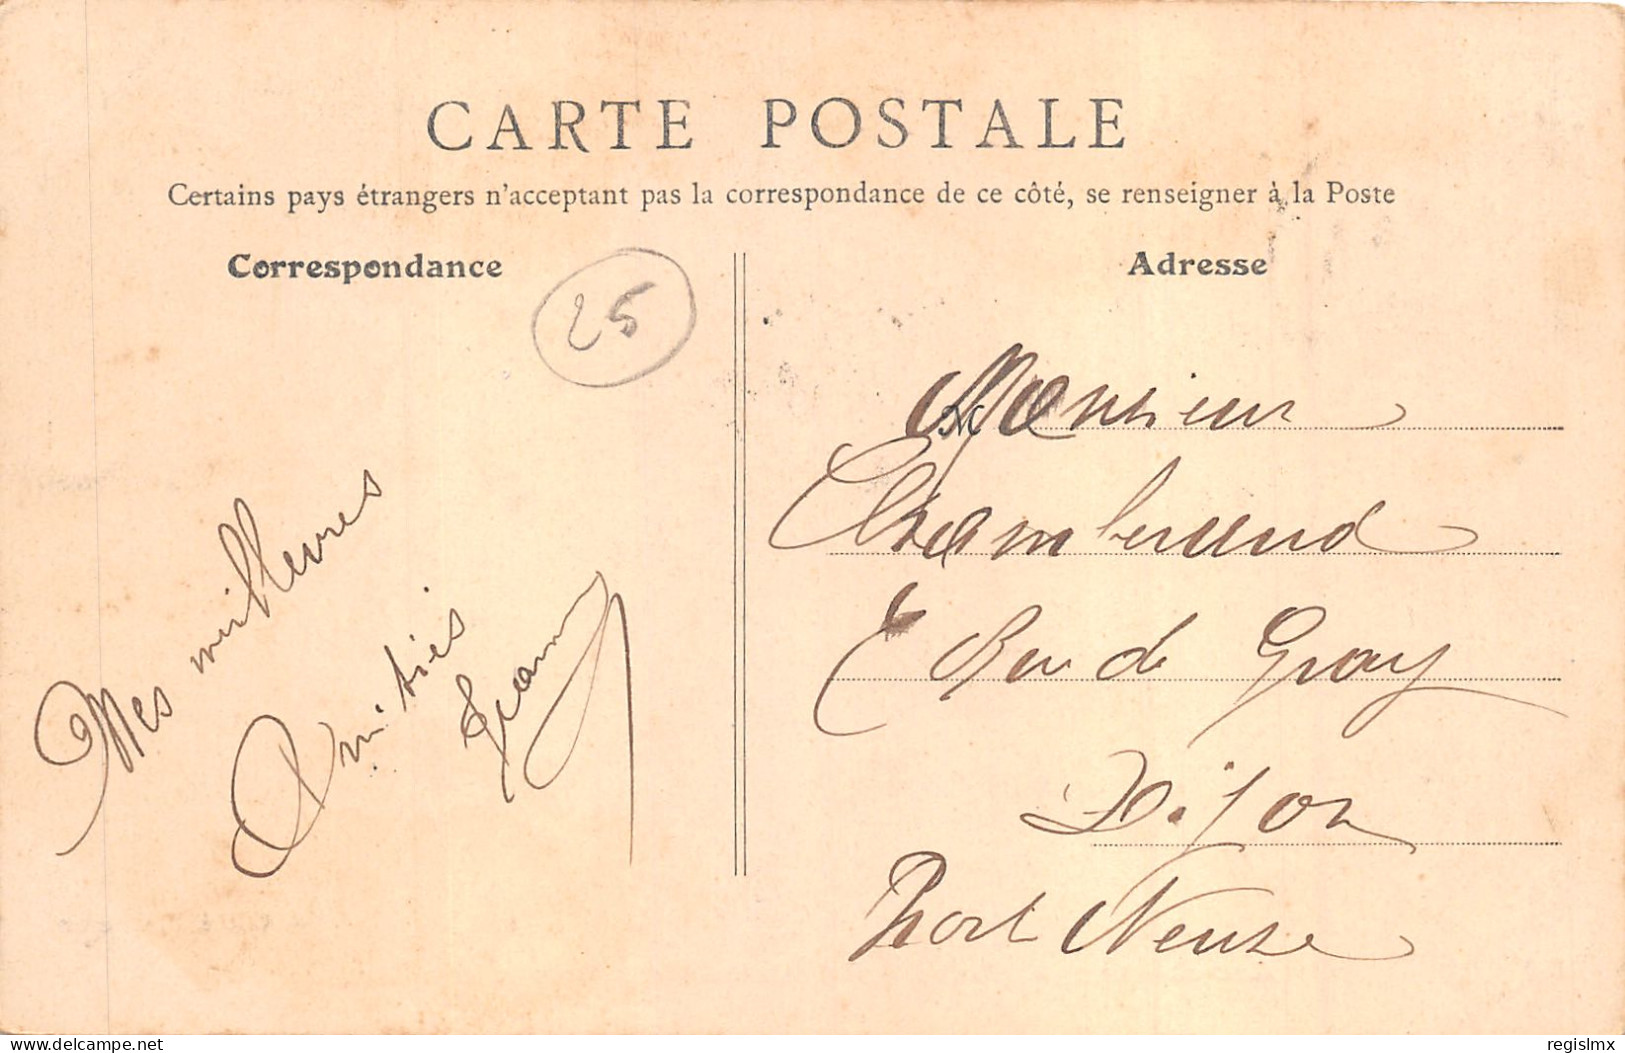 CARTE POSTALE
Certains pays étrangers n'acceptant pas la correspondance de ce côté, se renseigner à la Poste
Correspondance
25
Mes meilleures
Amitiés
Adresse
M
Monsieur
Chamberand
Rue de Gray
Dijon
Port Neuse
delcampe.net
regislmx